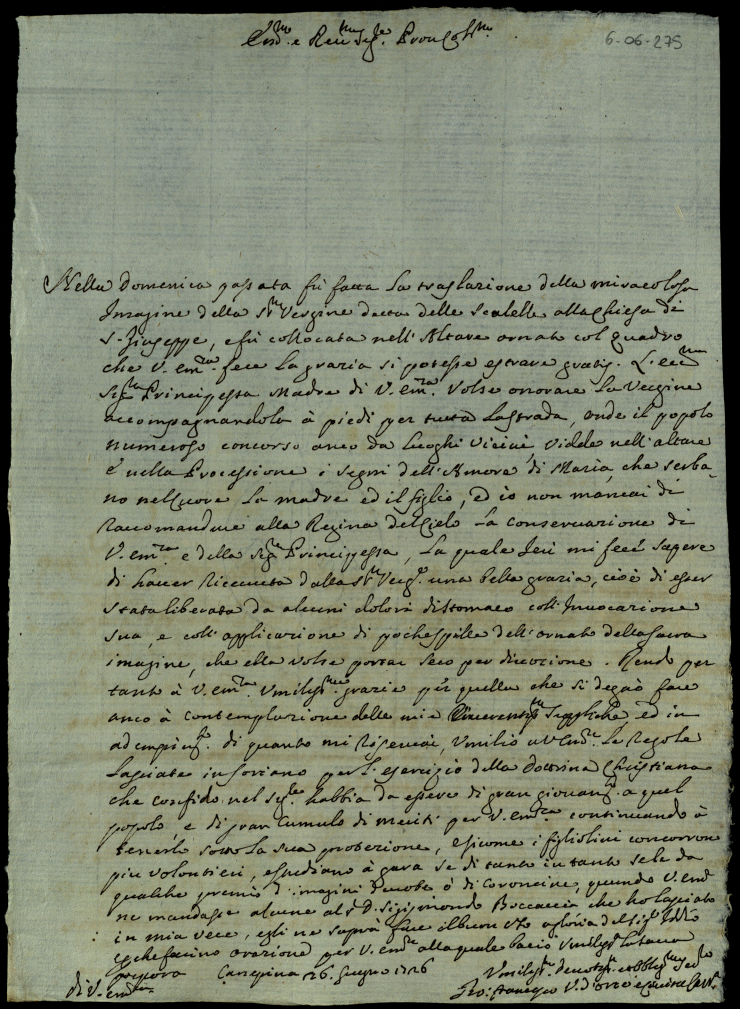 Em.mo e Rev.mo Sig.re Pron Col.mo
6-06-275
Nella Domenica passata fù fatta la traslazione della miracolosa
Imagine della S.ma Vergine detta delle Scalelle alla Chiesa di
S. Giuseppe, e fù collocata nell'Altare ornato col quadro
che V. Em.za fece la grazia si potesse estrare gratis. L'Ecc.ma
Sig.ra Principessa Madre di V. Em.za volse onorare la Vergine
accompagnandola à piedi per tutta la strada, onde il popolo
numeroso concorso anco da luoghi vicini, vidde nell'altare
e nella Processione i segni dell'Amore di Maria, che serba-
no nel cuore la madre ed il figlio, ed io non mancai di
raccomandare alla Regina del Cielo la conservazione di
V. Em.za e della Sig.ra Principessa, la quale Ieri mi fece sapere
di haver ricevuta dalla S.ma Verg.e una bella grazia, cioè di esser
stata liberata da alcuni dolori di stomaco coll'Invocazione
sua, e coll'applicazione di poche spille dell'ornato della sacra
imagine, che ella volse portar seco per divozione. Rendo per
tanto à V. Em.za Umilis.me grazie per quella che si degnò fare
anco à contemplazione delle mie suppliche, ed in
adempim.to di quanto mi riservai, Umilio a V. Em.za le Regole
lasciate in Soriano per l'esercizio della Dottrina Christiana
che confido nel Sig.re habbia da essere di gran giovam.to a quel
popolo, e di gran cumulo di meriti per V. Em.za continuando à
tenerlo sotto la sua protezione, e siccome i figliolini concorrono
più volontieri, e studiano à gara se di tanto in tanto se le dà
qualche premio d'imagini devote ò di Coroncine, quando V. Em.za
ne mandasse alcune al S.r D. Sigismondo Boccaccia che ho lasciato
in mia vece, egli ne saprà fare il buon uso a gloria del Sig.re Iddio
e che faccino orazione per V. Em.za alla quale bacio Umilis.te la Sacra
porpora Canepina 26. Giugno 1726
di V. Em.za
Umilis.mo Devotis.mo ed Obblig.mo Ser.re